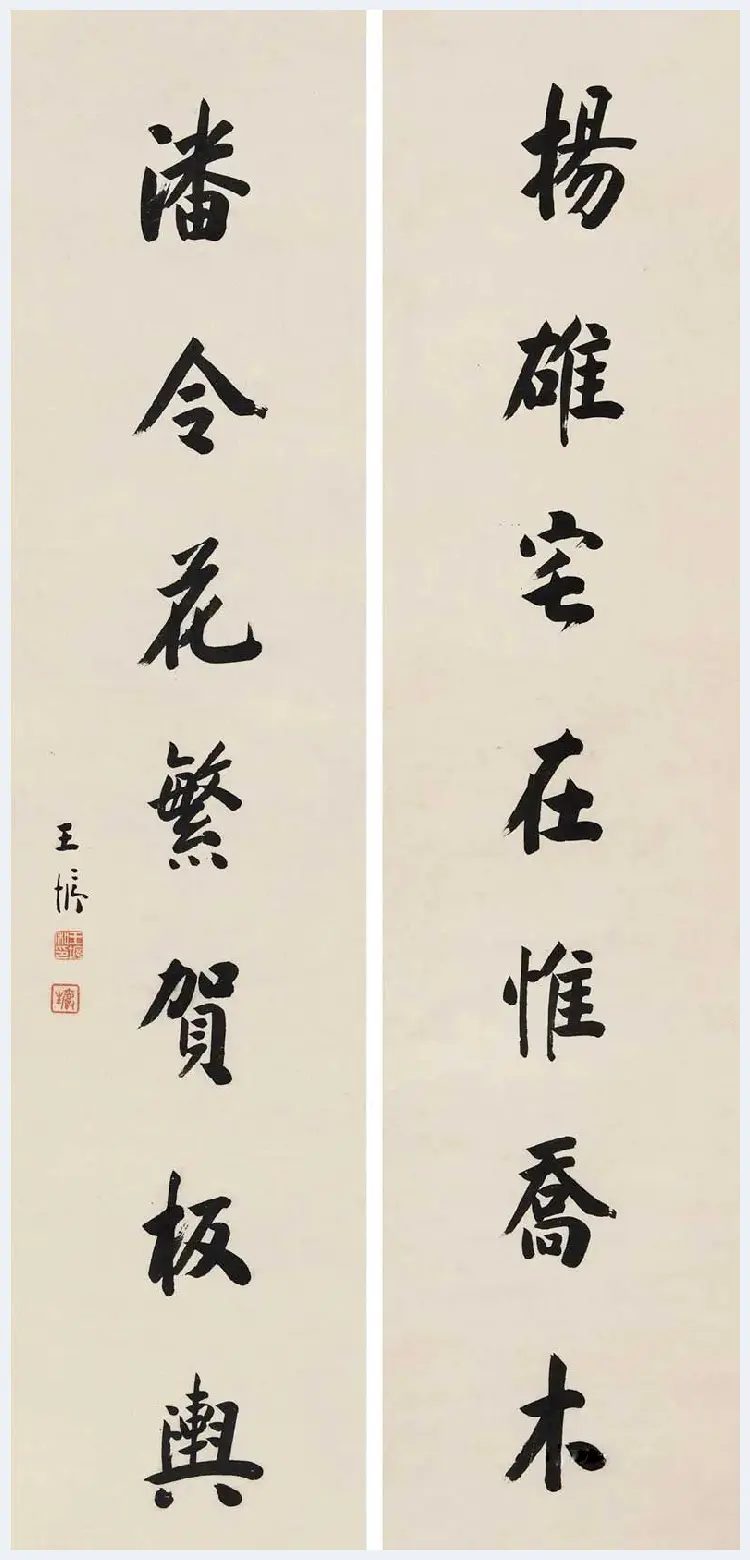 揚雄宅在惟喬木
潘令花繁賀板輿
王